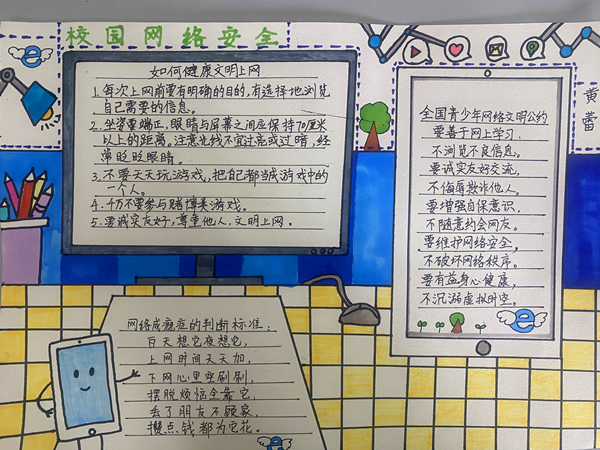 校园网络安全
如何健康文明上网
1.每次上网前要有明确的目的,有选择地浏览
自己需要的信息。
2.坐姿要端正,眼睛与屏幕之间应保持70厘米
以上的距离,注意光线不宜过亮或过暗,经
常眨眨眼睛。
3.不要天天玩游戏,把自己都当成游戏中的
一个人。
4.千万不要参与赌博类游戏。
5.要诚实友好,尊重他人,文明上网。
黄
蕾
全国青少年网络文明公约
要善于网上学习,
不浏览不良信息。
要诚实友好交流,
不侮辱欺诈他人。
要增强自保意识,
不随意约会网友。
要维护网络安全,
不破坏网络秩序。
要有益身心健康,
不沉溺虚拟时空。
网络成瘾症的判断标准:
白天想它夜想它,
上网时间天天加,
下网心里空刷刷,
摆脱烦恼全靠它,
丢了朋友不顾家,
攒点钱都为它花。